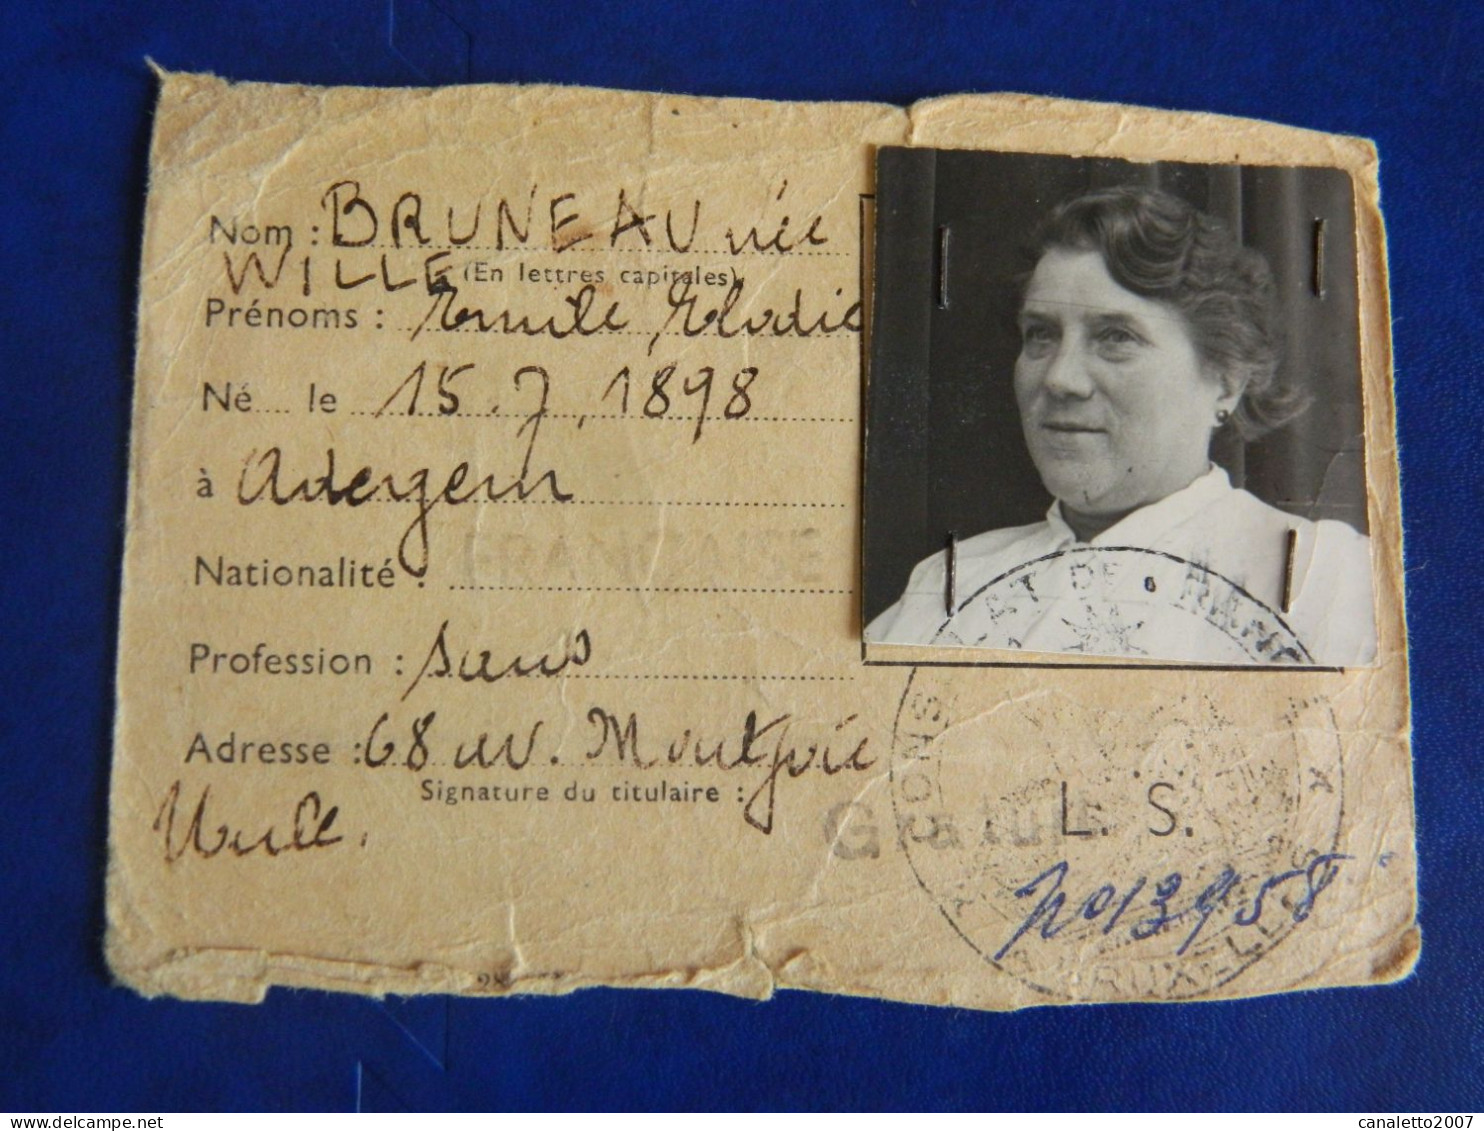 Nom : BRUNEAU née
WILLE (En lettres capitales)
Prénoms : Emile, Elodie
Né le 15.7.1898
à Adergem
Nationalité : FRANCAISE
Profession : sans
Adresse : 68 av. Montjoie
Signature du titulaire :
Uccle.
Gratuit
L. S.
CONSULAT DE FRANCE
A BRUXELLES
no 13958
canaletto2007